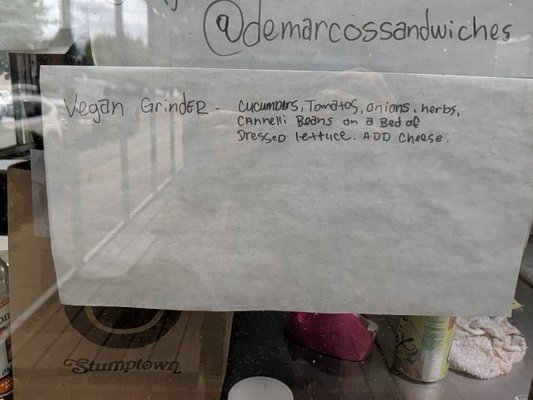 @demarcossandwiches
Vegan GrindER - cucumbers, Tomatos, onions, herbs,
cannelli Beans on a Bed of
Dressed lettuce. ADD cheese.
Stumptown